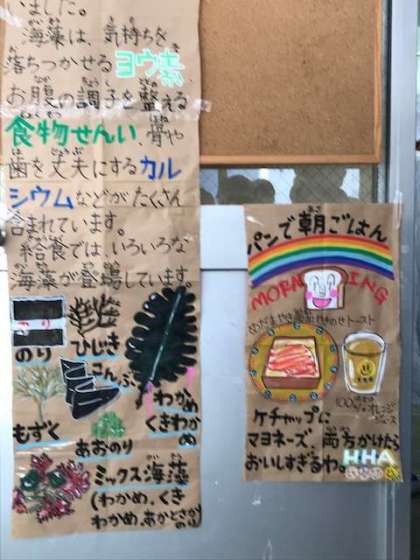 いました。
海藻は、気持ちを
落ちつかせるヨウ素
お腹の調子を整える
食物せんい、骨や
歯を丈夫にするカル
シウムなどがたくさん
含まれています。
給食では、いろいろな
海藻が登場しています。
のり
のり
ひじき
こんぶ
わかめ
くきわかめ
もずく
あおのり
ミックス海藻
(わかめ、くき
わかめ、あかとさかのり)
パンで朝ごはん
MORNING
トースト
ケチャップに
マヨネーズ、両方かけたら
おいしすぎるわ。
HHA